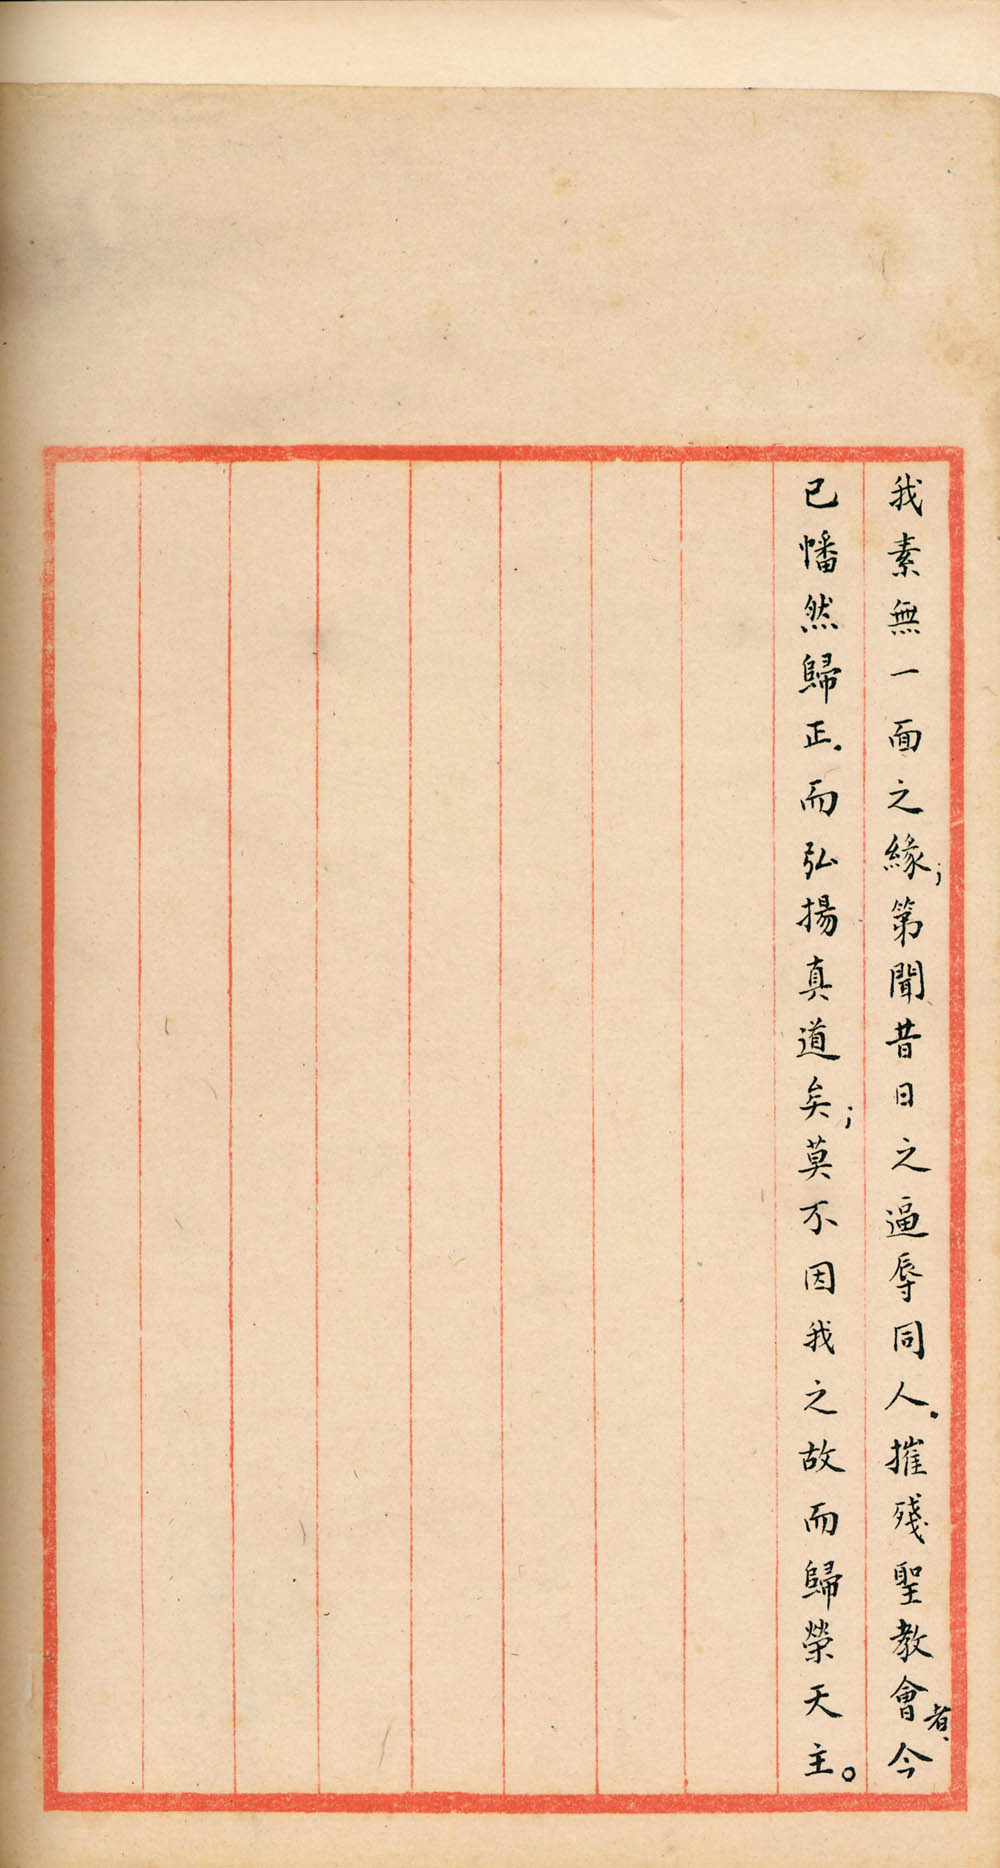 我素無一面之緣；第聞昔日之逼辱同人．摧殘聖教會者、今
已幡然歸正．而弘揚真道矣；莫不因我之故而歸榮天主。